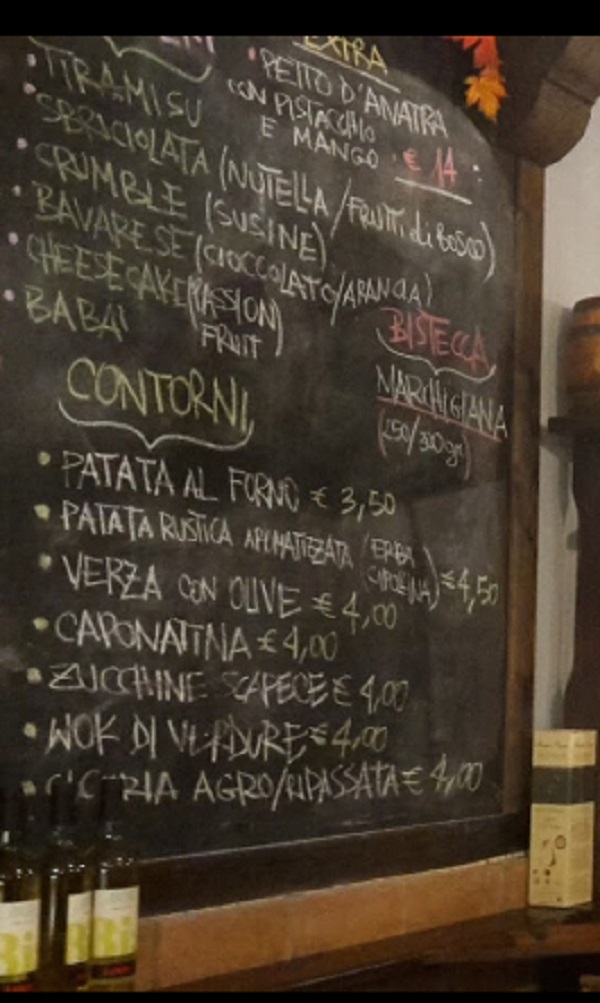 EXTRA
• PETTO D'ANATRA
CON PISTACCHIO
E MANGO • € 14
• TIRAMISU
• SBRICIOLATA (NUTELLA / FRUTTI di BOSCO)
• CRUMBLE (SUSINE)
• BAVARESE (CIOCCOLATO/ARANCIA)
• CHEESECAKE (PASSION
FRUIT)
• BABAI
BISTECCA
MARCHIGIANA
(250/300gr)
CONTORNI
• PATATA AL FORNO € 3,50
• PATATA RUSTICA AROMATIZZATA (ERBA
CIPOLLINA) € 4,50
• VERZA CON OLIVE € 4,00
• CAPONATINA € 4,00
• ZUCCHINE SCAPECE € 4,00
• WOK DI VERDURE € 4,00
• CICORIA AGRO/RIPASSATA € 4,00
Ri